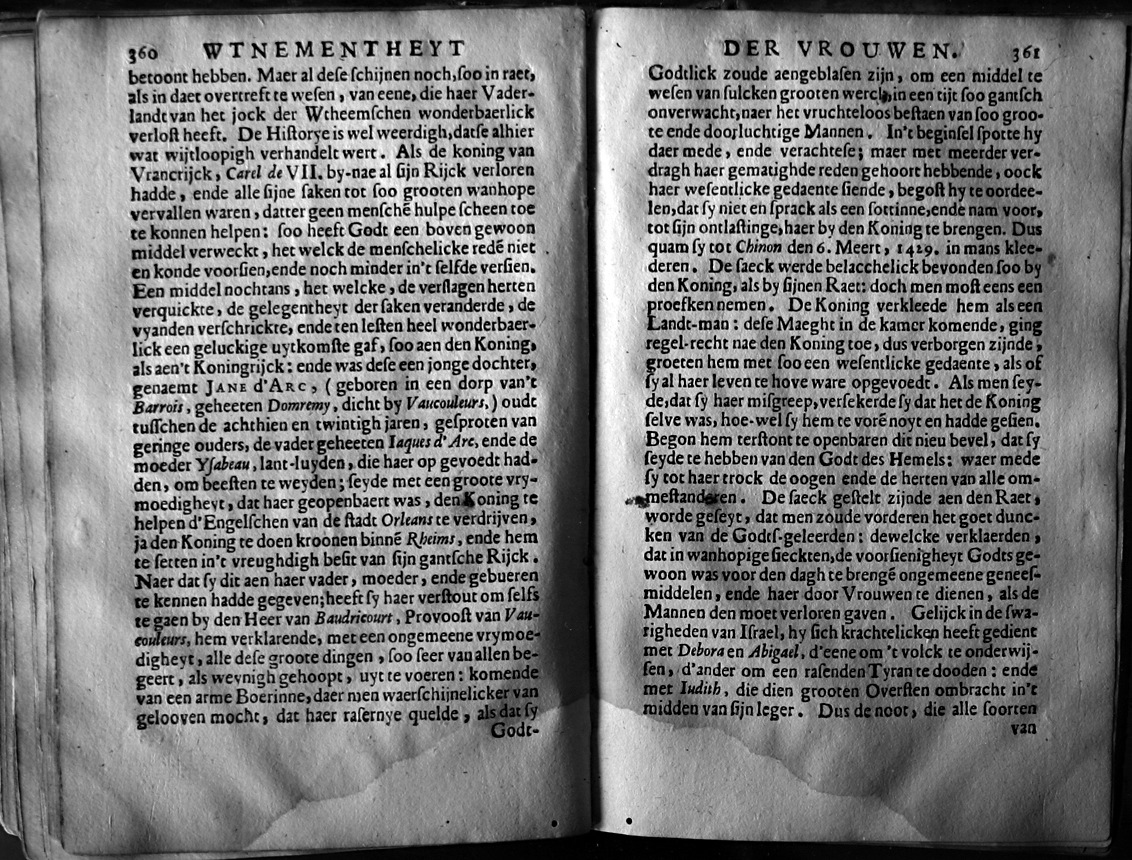 360 WTNEMENTHEYT
betoont hebben. Maer al dese schijnen noch, soo in raet,
als in daet overtreft te wesen, van eene, die haer Vader-
landt van het jock der Wtheemschen wonderbaerlick
verlost heeft. De Historye is wel weerdigh, datse alhier
wat wijtloopigh verhandelt wert. Als de koning van
Vrancrijck, Carel de VII. by-nae al sijn Rijck verloren
hadde, ende alle sijne saken tot soo grooten wanhope
vervallen waren, datter geen menschē hulpe scheen toe
te konnen helpen: soo heeft Godt een boven gewoon
middel verweckt, het welck de menschelicke redē niet
en konde voorsien, ende noch minder in't selfde versien.
Een middel nochtans, het welcke, de verslagen herten
verquickte, de gelegentheyt der saken veranderde, de
vyanden verschrickte, ende ten lesten heel wonderbaer-
lick een geluckige uytkomste gaf, soo aen den Koning,
als aen't Koningrijck: ende was dese een jonge dochter,
genaemt JANE d'ARC, (geboren in een dorp van't
Barrois, geheeten Domremy, dicht by Vaucouleurs,) oudt
tusschen de achthien en twintigh jaren, gesproten van
geringe ouders, de vader geheeten Iaques d'Arc, ende de
moeder Ysabeau, lant-luyden, die haer op gevoedt had-
den, om beesten te weyden; seyde met een groote vry-
moedigheyt, dat haer geopenbaert was, den Koning te
helpen d'Engelschen van de stadt Orleans te verdrijven,
ja den Koning te doen kroonen binnē Rheims, ende hem
te setten in't vreughdigh besit van sijn gantsche Rijck.
Naer dat sy dit aen haer vader, moeder, ende gebueren
te kennen hadde gegeven; heeft sy haer verstout om selfs
te gaen by den Heer van Baudricourt, Provoost van Vau-
couleurs, hem verklarende, met een ongemeene vrymoe-
digheyt, alle dese groote dingen, soo seer van allen be-
geert, als weynigh gehoopt, uyt te voeren: komende
van een arme Boerinne, daer men waerschijnelicker van
gelooven mocht, dat haer rasernye quelde, als dat sy
Godt-
DER VROUWEN. 361
Godtlick zoude aengeblasen zijn, om een middel te
wesen van sulcken grooten werck, in een tijt soo gantsch
onverwacht, naer het vruchteloos bestaen van soo groo-
te ende doorluchtige Mannen. In't beginsel spotte hy
daer mede, ende verachtese; maer met meerder ver-
dragh haer gematighde reden gehoort hebbende, oock
haer wesentlicke gedaente siende, begost hy te oordee-
len, dat sy niet en sprack als een sottinne, ende nam voor,
tot sijn ontlastinge, haer by den Koning te brengen. Dus
quam sy tot Chinon den 6. Meert, 1429. in mans klee-
deren. De saeck werde belacchelick bevonden soo by
den Koning, als by sijnen Raet: doch men most eens een
proefken nemen. De Koning verkleede hem als een
Landt-man: dese Maeght in de kamer komende, ging
regel-recht nae den Koning toe, dus verborgen zijnde,
groeten hem met soo een wesentlicke gedaente, als of
sy al haer leven te hove ware opgevoedt. Als men sey-
de, dat sy haer misgreep, versekerde sy dat het de Koning
selve was, hoe-wel sy hem te vorē noyt en hadde gesien.
Begon hem terstont te openbaren dit nieu bevel, dat sy
seyde te hebben van den Godt des Hemels: waer mede
sy tot haer trock de oogen ende de herten van alle om-
mestanderen. De saeck gestelt zijnde aen den Raet,
worde geseyt, dat men zoude vorderen het goet dunc-
ken van de Godts-geleerden: dewelcke verklaerden,
dat in wanhopige sieckten, de voorsienigheyt Godts ge-
woon was voor den dagh te brengē ongemeene genees-
middelen, ende haer door Vrouwen te dienen, als de
Mannen den moet verloren gaven. Gelijck in de swa-
righeden van Israel, hy sich krachtelicken heeft gedient
met Debora en Abigael, d'eene om 't volck te onderwij-
sen, d'ander om een rasenden Tyran te dooden: ende
met Iudith, die dien grooten Oversten ombracht in't
midden van sijn leger. Dus de noot, die alle soorten
van